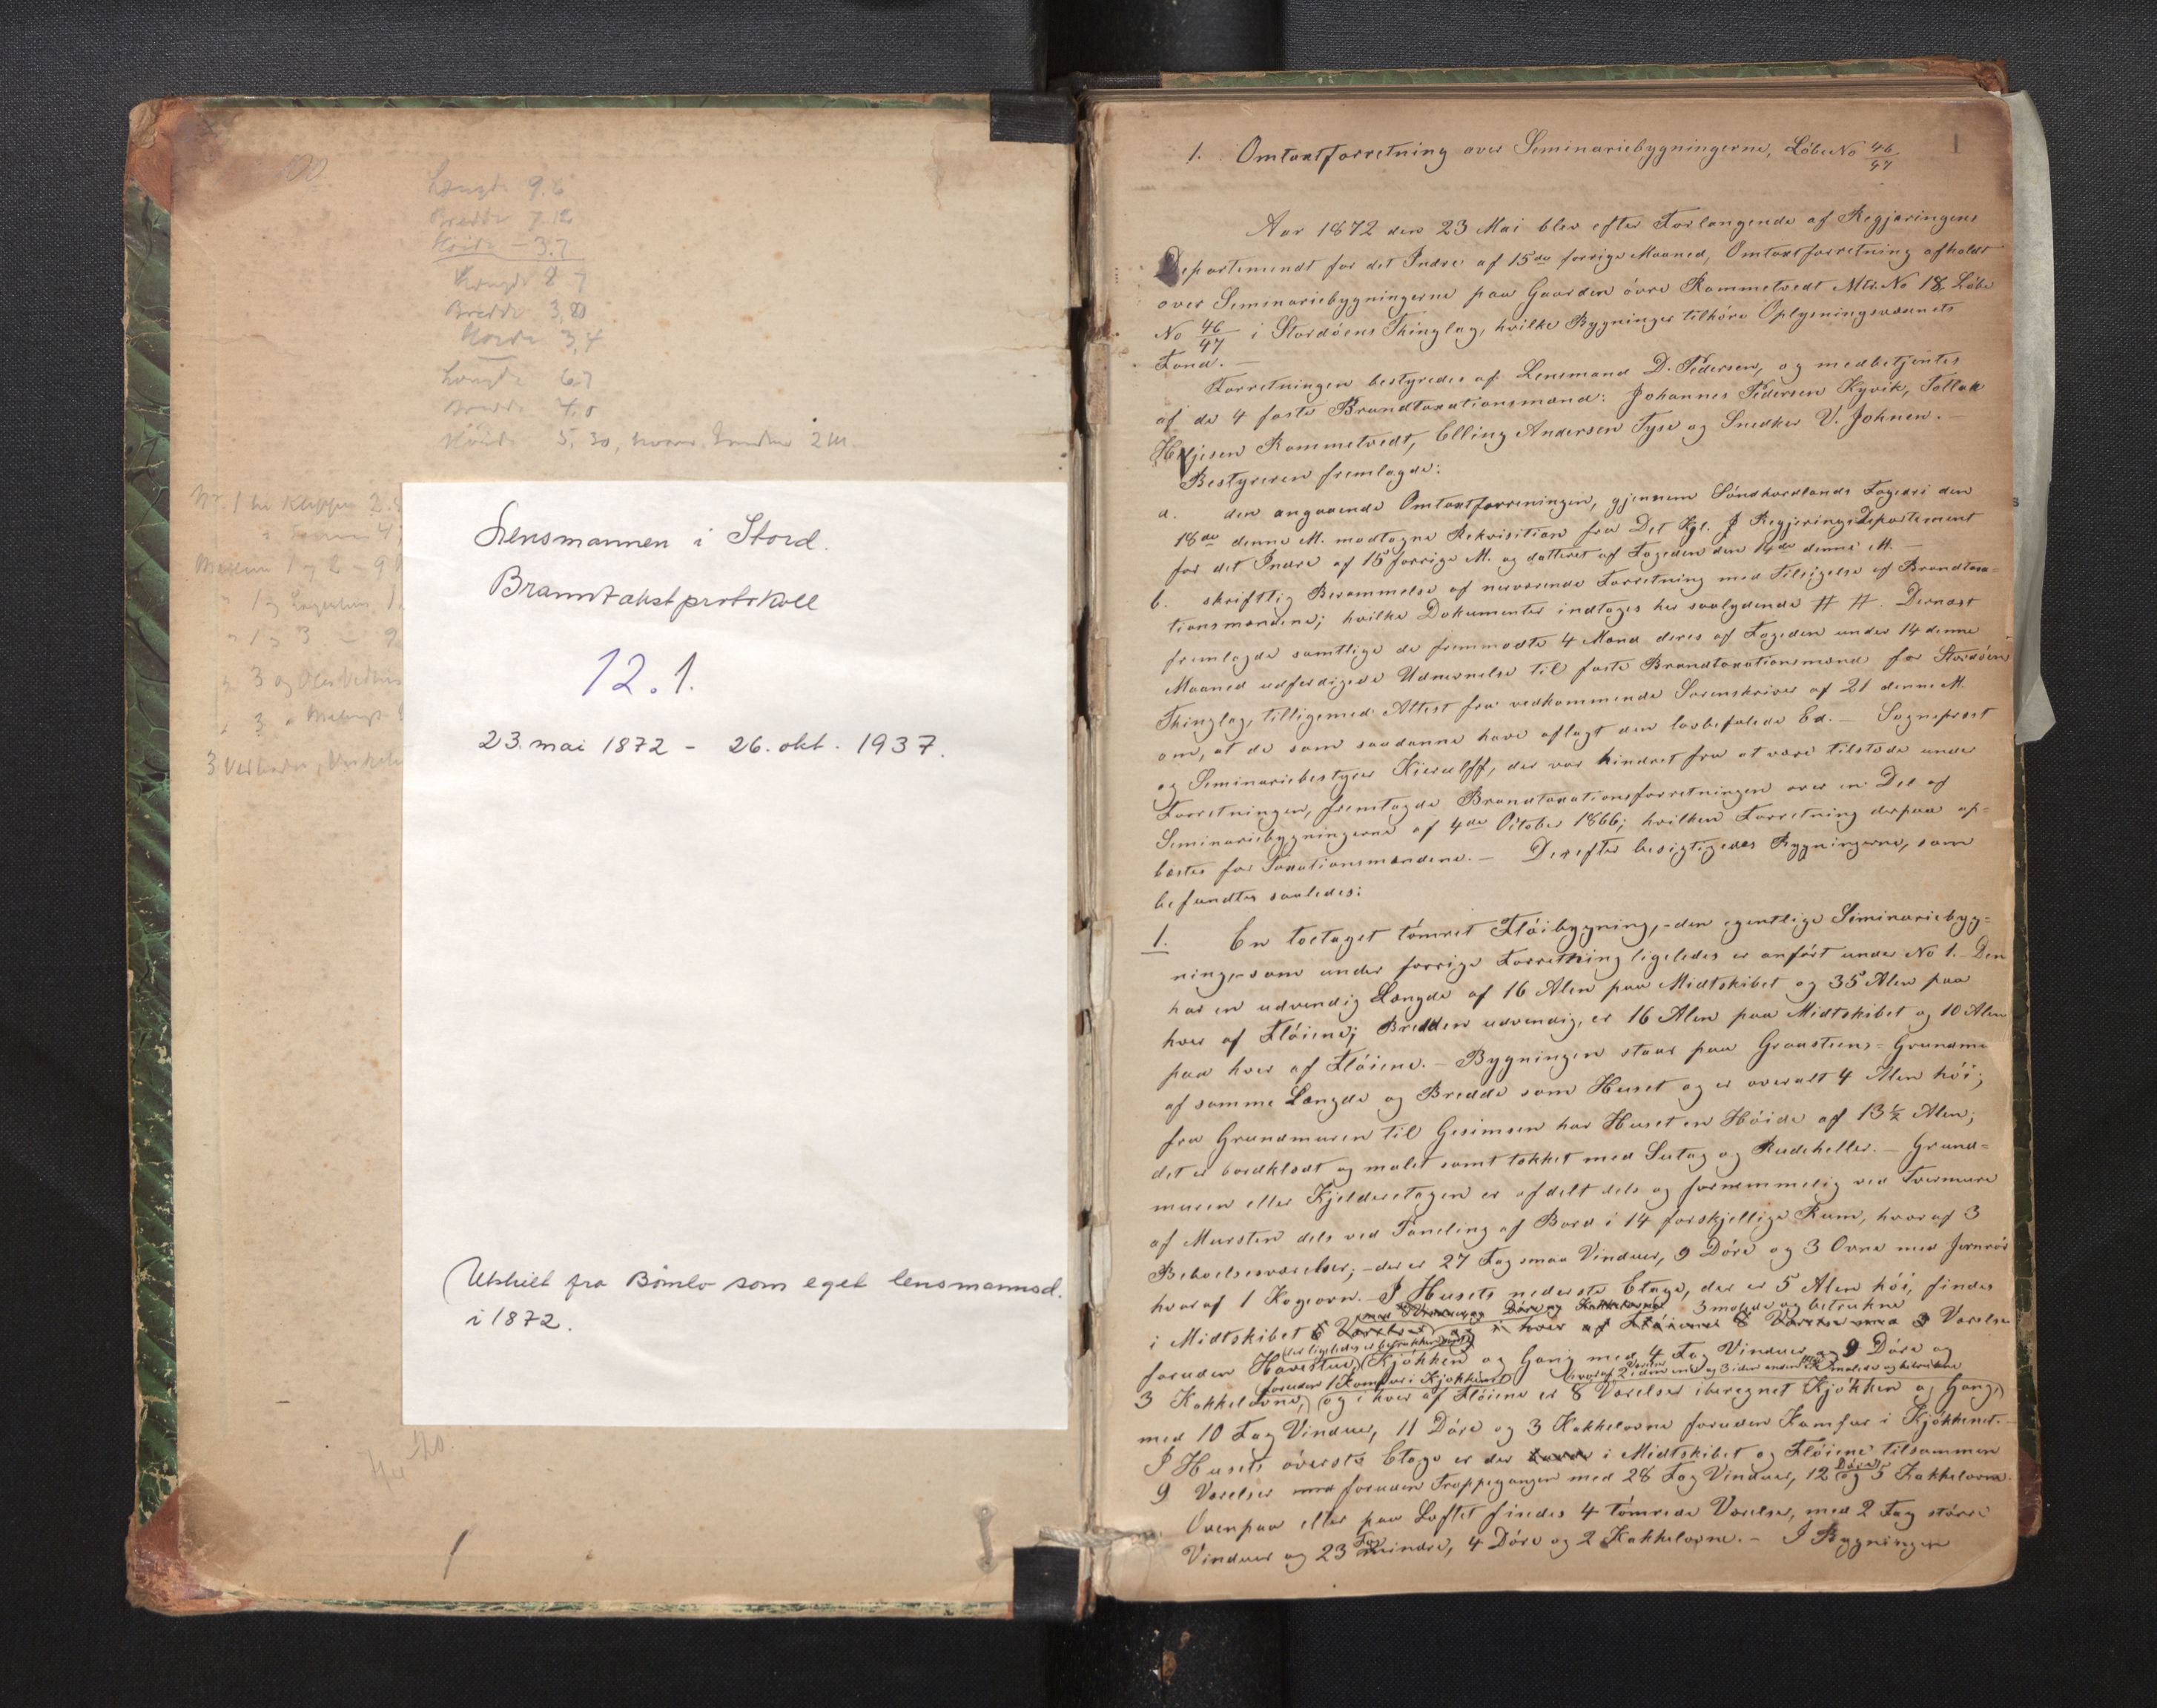 Længde 9.6
Bredde 7.12
Høide - 3.7
Længde 8 7
Bredde 3,80
Høide 3,4
Længde 6.7
Bredde 4.0
Høide 5,30, hvorav 2 m.
Nr. 1 til Klippen 2.
4
1 og 2 - 9
1 og
1 og 3 - 9
3 og Oles Vedhus
3
Lensmannen i Stord.
Branntakstprotokoll
12.1.
23. mai 1872 - 26. okt. 1937.
(Utskilt fra Bømlo som eget lensmannsd.
i 1872.
1
1. Omtaxtforretning over Seminariebygningerne, LöbeNo 46/47
Aar 1872 den 23 Mai blev efter Forlangende af Regjeringens
Departementet for det Indre af 15de forrige Maaned, Omtaxtforretning afholdt
over Seminariebygningerne paa Gaarden övre Rommetvedt Mtr.No 18 Löbe
No 46/47 i Stordöens Thinglag, hvilke Bygninger tilhöre Oplysningsvæsenets
Fond. —
Forretningen bestyredes af Lensmand D. Pedersen, og medbetjentes
af de 4 faste Brandtaxationsmænd: Johannes Pedersen Kyvik, Tollak
Heljesen Rommetvedt, Elling Andersen Tyse og Snedker V. Johnen. —
Bestyreren fremlagde:
a. den angaaende Omtaxtforreningen, gjennem Söndhordlands Fogderi den
18de denne M. modtagne Rekvisition fra Det Kgl. Regjerings Departement
for det Indre af 15 forrige M. og datteret af Fogeden den 14de denne M. —
b. skriftlig Berammelse af nerværende Forretning med Tilsigelse af Brandtaxa-
tionsmændene; hvilke Dokumenter indtages her saalydende # #. Dernæst
fremlagde samtlige de fremmødte 4 Mænd deres af Fogeden under 14 denne
Maaned udferdigede Udnævnelse til faste Brandtaxationsmænd for Stordöens
Thinglag, tilligemed Attest fra vedkommende Sorenskriver af 21 denne M.
om, at de som saadanne have aflagt den lovbefalede Ed. — Sogneprest
og Seminariebestyrer Kierulff, der var hindret fra at være tilstede under
Forretningen, fremlagde Brandtaxationsforretningen over en Del af
Seminariebygningerne af 4de October 1866; hvilken Forretning derpaa op-
læstes for Taxationsmændene. — Derefter besigtigedes Bygningerne, som
befandtes saaledes:
1. En toetaget tömret Flöibygning, - den egentlige Seminariebyg-
ning, som under forrige Forretning ligeledes er anfört under No 1. — Den
har en udvendig Længde af 16 Alen paa Midtskibet og 35 Alen paa
hver af Flöiene; Bredden udvendig, er 16 Alen paa Midtskibet og 10 Alen
paa hver af Flöiene. — Bygningen staar paa Graasteens-Grundmur
af samme Længde og Bredde som Huset og er overalt 4 Alen höi;
fra Grundmuren til Gesimsen har Huset en Höide af 13½ Alen;
det er bordklædt og malet samt tækket med Sutag og Rudeheller. — Grund-
muren eller Kjelderetagen er afdelt dels og fornemmelig ved Tvermure
af Mursten dels ved Paneling af Bord i 14 forskjellige Rum, hvoraf 3
Beboelsesværelser; - der er 27 Fag smaa Vinduer, 9 Döre og 3 Ovne med Jernrör
hvoraf 1 Kogeovn. — I Husets nederste Etage, der er 5 Alen höi, findes
med 8 Vinduer og Döre og Kakkelovne 3 malede og betrukne
i Midtskibet 6 Værelser og i hver af Flöiene 8 Værelser med 3 Værelser
der ligeledes er betrukken
foruden Havestue, Kjökken og Gang med 4 Fag Vinduer og 9 Döre og
foruden 1 Komfur i Kjökkenet hvoraf 2 Værelser i den ene og 3 i den anden malede og betrukne
3 Kakkelovne, og i hver af Flöiene er 8 Værelser iberegnet Kjökken og Gang,
med 10 Fag Vinduer, 11 Döre og 3 Kakkelovne foruden Komfur i Kjökkenet. —
I Husets överste Etage er der i Midtskibet og Flöiene tilsammen
9 Værelser med foruden Trappegangen med 28 Fag Vinduer, 12 Döre og 5 Kakkelovne.
Ovenpaa eller paa Loftet findes 4 tömrede Værelser, med 2 Fag större
Vinduer og 23 Fag mindre, 4 Döre og 2 Kakkelovne. — I Bygningen